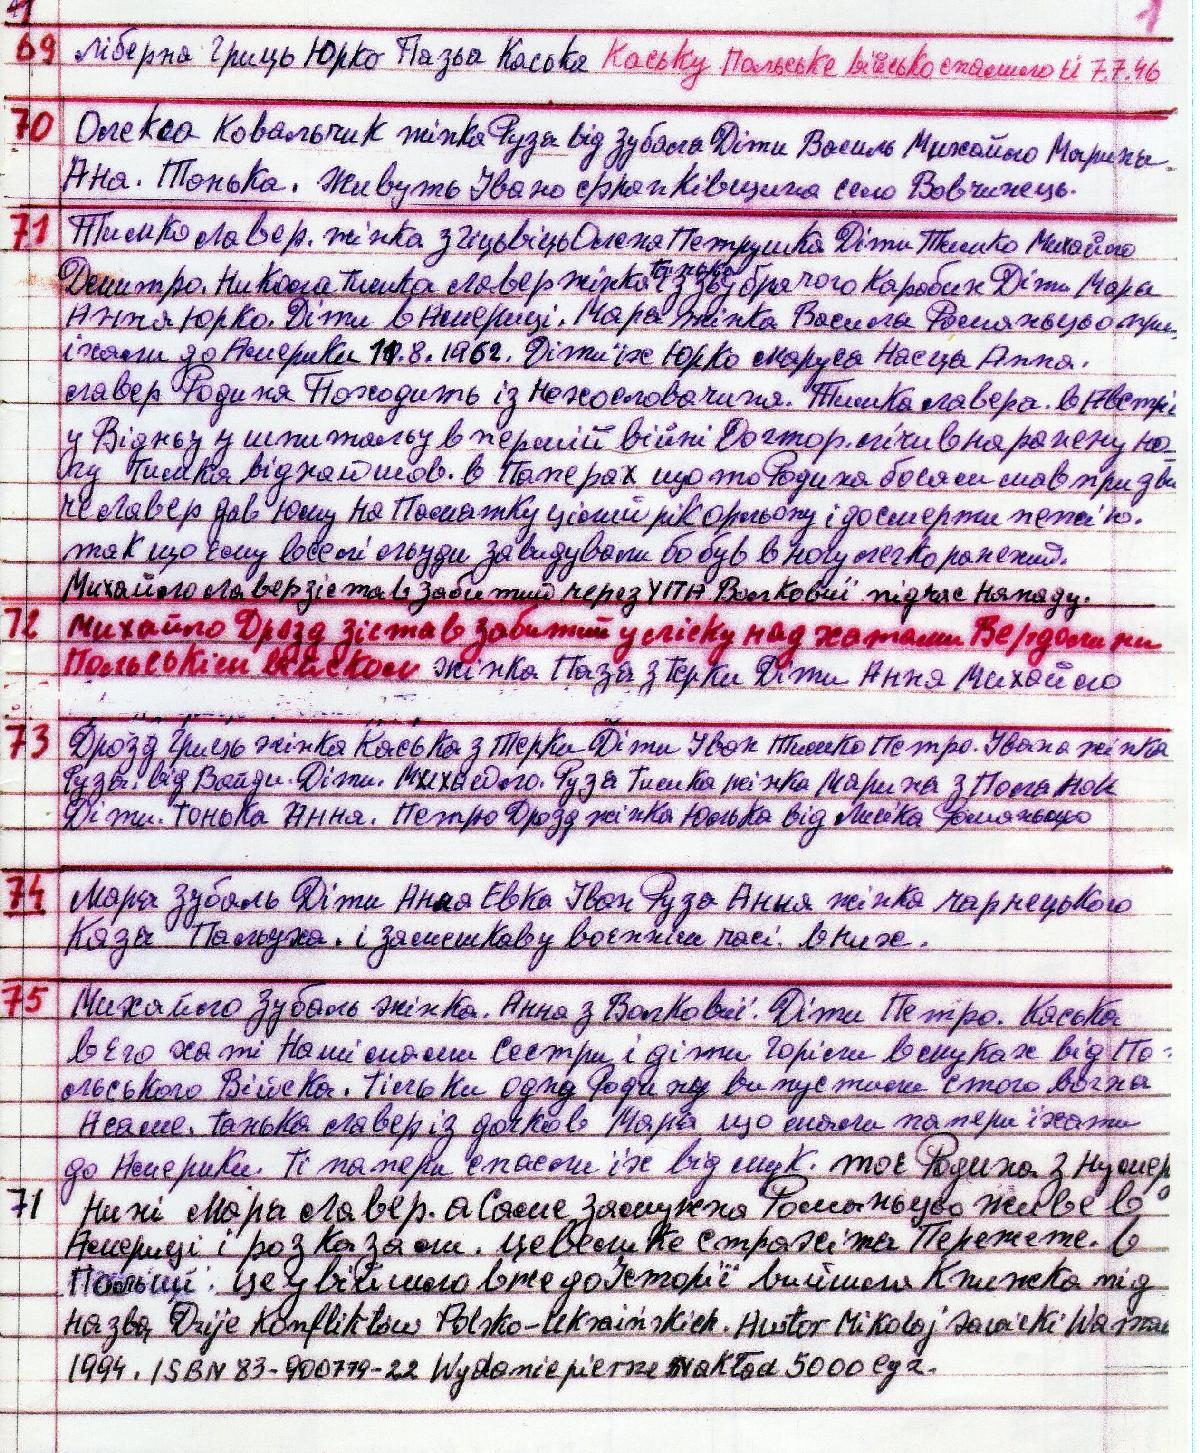 69 Ліберна Гриць Юрко Пазьа Каська Каську Польське військо спалило її 7.7.46
70 Олекса Ковальчик жінка Рузя від Зубаля Діти Василь Михайло Марина
Ана. Тонька. Живуть Івано франківщина село Вовчинець.
71 Тимко Лавер. жінка з Олена Петрушка Діти Тимко Михайло
Демитро. Никола Тимка Лавер жінка Танька із Каробик Діти Мара
Анна Юрко. Діти в Америці. Мара жінка Василя Романьцьо при
їхали до Америки 11.8.1962. Діти їх Юрко Маруса Насца Анна.
Лавер Родина Походить із Чехословачини. Тимка Лавера. в Австрі
у Відньу у шпитальу в першій війні Доктор. лічив на ранену но
гу Тимка віднайшов. в Паперах що то Родина
че Лавер дав йому на і до смерти пенсію.
так що йому вселі льуди завидували бо був в ногу легко ранений.
Михайло Лавер зістав забитий через УПА Волковиї підчас нападу.
72 Михайло Дрозд зістав забитий у ліску над хатами Вердами
Польськім війском жінка Паза з Терки Діти Анна Михайло
73 Дрозд Гриць жінка Каська з Терки Діти Іван Тимко Петро. Івана жінка
Рузя від Войди. Діти. Михайло. Руза Тимка жінка Марина з Поланок
Діти. Тонька Анна. Петро Дрозд жінка Юлька від Романьцьо
74 Мара Зубаль Діти Анна Евка Іван Руза Анна жінка Чарнецького
Казя Пальуха. і замешкав у военнім часі. в них.
75 Михайло Зубаль жінка. Анна з Волковиї. Діти Петро. Каська
в Его хаті Наші мами Сестри і діти Горіли в муках від По-
льського Війска. тільки одну Родину випустили с того вогна
А саме. Танька Лавер із дочков Мара що мали папери їхати
до Америки. Ті папери спасли їх від мук. тое Родина з нумер
71 Нині Мара Лавер. а Саме замужна Романьцьо живе в
Америці і розказали. це велике страхітя Пережете. в
Польщі. це увійшло вже до Історії вийшла Книжка під
назвą Dzije Konfliktów Polsko-Ukraińskich. Autor Mikołaj Siwicki Warszaw
1994. ISBN 83-900779-22 Wydanie pierwsze Nakład 5000 egz.